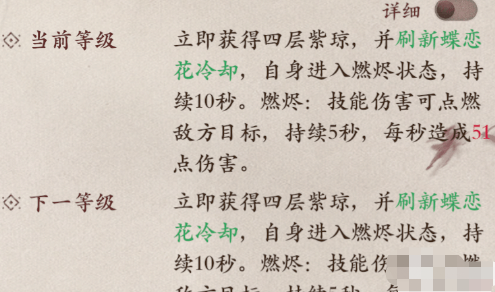 详细
当前等级 立即获得四层紫琼，并刷新蝶恋
花冷却，自身进入燃烬状态，持
续10秒。燃烬：技能伤害可点燃
敌方目标，持续5秒，每秒造成51
点伤害。
下一等级 立即获得四层紫琼，并刷新蝶恋
花冷却，自身进入燃烬状态，持
续10秒。燃烬：技能伤
燃
敌方目标，持续5秒，每